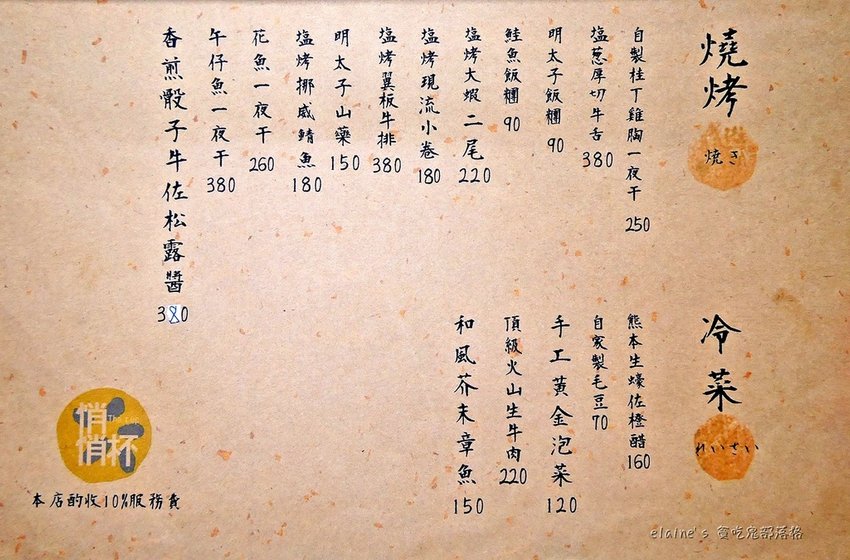 燒烤
焼き
自製桂丁雞胸一夜干 250
塩蔥厚切牛舌 380
明太子飯糰 90
鮭魚飯糰 90
塩烤大蝦二尾 220
塩烤現流小卷 180
塩烤翼板牛排 380
明太子山藥 150
塩烤挪威鯖魚 180
花魚一夜干 260
午仔魚一夜干 380
香煎骰子牛佐松露醬 380
冷菜
れいさい
熊本生蠔佐橙醋 160
自家製毛豆 70
手工黃金泡菜 120
頂級火山生牛肉 220
和風芥末章魚 150
悄悄杯
本店酌收10%服務費
elaine's 貪吃鬼部落格